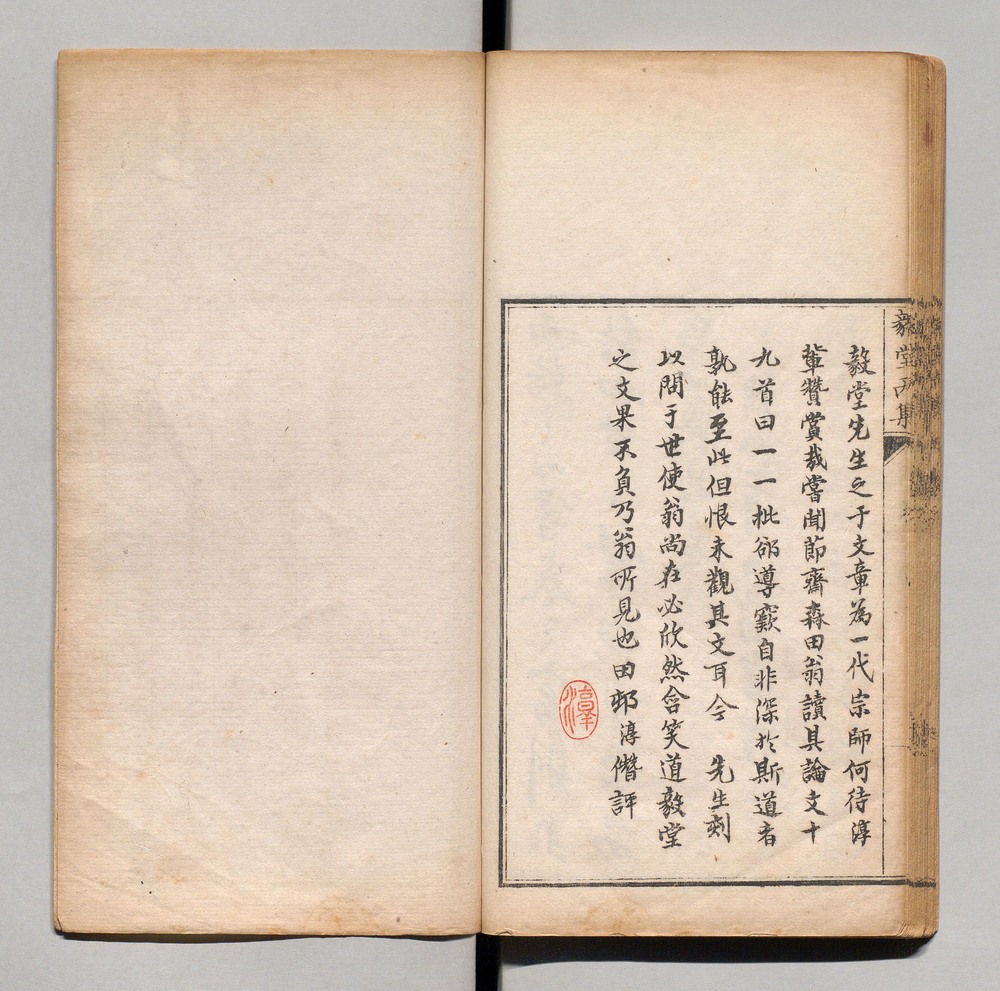 毅堂丙集
毅堂先生之于文章為一代宗師何待淳
輩贊賞哉嘗聞節齋森田翁讀其論文十
九首曰一一批郤導窾自非深於斯道者
孰能至此但恨未觀其文耳今 先生刻
以問于世使翁尚在必欣然含笑道毅堂
之文果不負乃翁所見也田邨淳僭評
淳